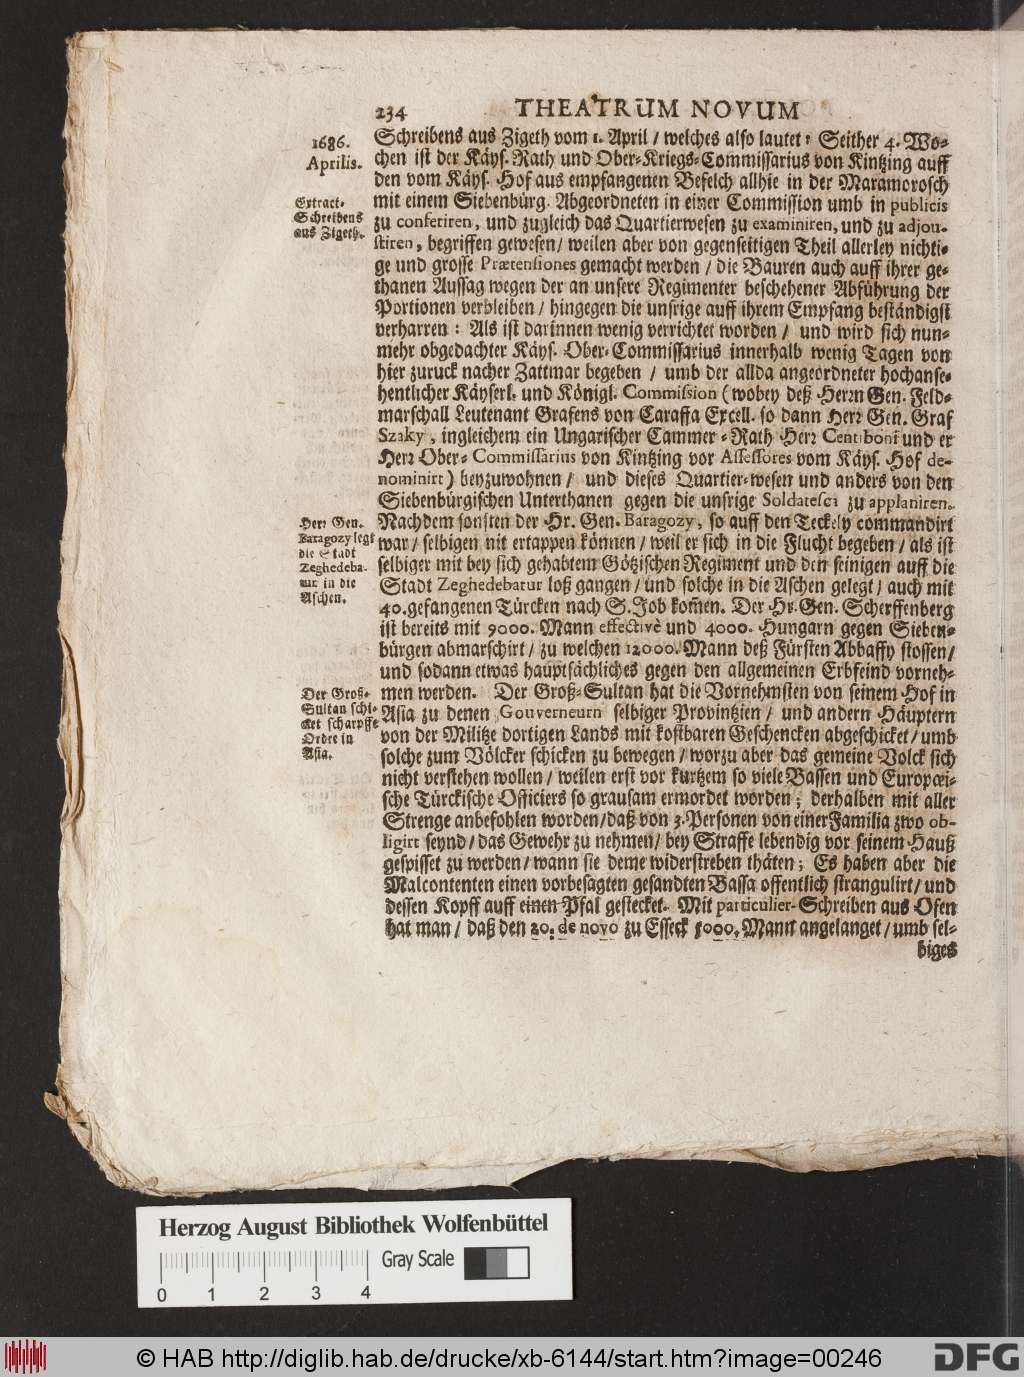 234 THEATRUM NOVUM
1686.
Aprilis.
Extract-
Schreibens
aus Zigeth.
Schreibens aus Zigeth vom 1. April / welches also lautet: Seither 4. Wo-
chen ist der Käys. Rath und Ober-Kriegs-Commissarius von Kintzing auff
den vom Käys. Hof aus empfangenen Befelch allhie in der Maramorosch
mit einem Siebenbürg. Abgeordneten in einer Commission umb in publicis
zu conferiren, und zugleich das Quartierwesen zu examiniren, und zu adjou-
stiren, begriffen gewesen / weilen aber von gegenseitigen Theil allerley nichti-
ge und grosse Prætensiones gemacht werden / die Bauren auch auff ihrer ge-
thanen Aussag wegen der an unsere Regimenter beschehener Abführung der
Portionen verbleiben / hingegen die unsrige auff ihrem Empfang beständigst
verharren: Als ist darinnen wenig verrichtet worden / und wird sich nun-
mehr obgedachter Käys. Ober-Commissarius innerhalb wenig Tagen von
hier zuruck nacher Zattmar begeben / umb der allda angeordneter hochanse-
hentlicher Käyserl. und Königl. Commission (wobey deß Herrn Gen. Feld-
marschall Leutenant Grafens von Caraffa Excell. so dann Herr Gen. Graf
Szaky, ingleichem ein Ungarischer Cammer-Rath Herr Centiboni und er
Herr Ober-Commissarius von Kintzing vor Assessores vom Käys. Hof de-
nominirt) beyzuwohnen / und dieses Quartier-wesen und anders von den
Siebenbürgischen Unterthanen gegen die unsrige Soldatesca zu applaniren.
Herr Gen.
Baragozy legt
die Stadt
Zeghedeba-
tur in die
Aschen.
Nachdem sonsten der Hr. Gen. Baragozy, so auff den Teckely commandirt
war / selbigen nit ertappen können / weil er sich in die Flucht begeben / als ist
selbiger mit bey sich gehabtem Götzischen Regiment und den seinigen auff die
Stadt Zeghedebatur loß gangen / und solche in die Aschen gelegt / auch mit
40. gefangenen Türcken nach S. Job kom̃en. Der Hr. Gen. Scherffenberg
ist bereits mit 9000. Mann effectivè und 4000. Hungarn gegen Sieben-
bürgen abmarschirt / zu welchen 12000. Mann deß Fürsten Abbaffy stossen /
und sodann etwas hauptsächliches gegen den allgemeinen Erbfeind vorneh-
Der Groß-
Sultan schi-
cket scharpffe
Ordre in
Asia.
men werden. Der Groß-Sultan hat die Vornehmsten von seinem Hof in
Asia zu denen Gouverneurn selbiger Provintzien / und andern Häuptern
von der Militze dortigen Lands mit kostbaren Geschencken abgeschicket / umb
solche zum Völcker schicken zu bewegen / worzu aber das gemeine Volck sich
nicht verstehen wollen / weilen erst vor kurtzem so viele Bassen und Europæi-
sche Türckische Officiers so grausam ermordet worden; derhalben mit aller
Strenge anbefohlen worden / daß von 3. Personen von einer Familia zwo ob-
ligirt seynd / das Gewehr zu nehmen / bey Straffe lebendig vor seinem Hauß
gespisset zu werden / wann sie deme widerstreben thäten; Es haben aber die
Malcontenten einen vorbesagten gesandten Bassa offentlich strangulirt / und
dessen Kopff auff einen Pfal gestecket. Mit particulier-Schreiben aus Ofen
hat man / daß den 20. de novo zu Esseck 5000. Mann angelanget / umb sel-
biges
Herzog August Bibliothek Wolfenbüttel
Gray Scale
0 1 2 3 4
© HAB http://diglib.hab.de/drucke/xb-6144/start.htm?image=00246
DFG